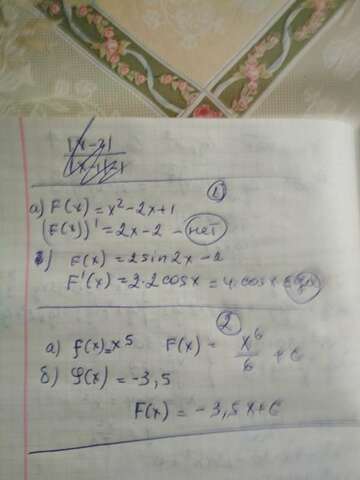 ①
а) F(x) = x² - 2x + 1
(F(x))' = 2x - 2 - нет
в) F(x) = 2sin2x - 2
F'(x) = 2·2cosx = 4·cosx
②
а) f(x) = x5 F(x) = x⁶/6 + C
б) f(x) = -3,5
F(x) = -3,5x + C